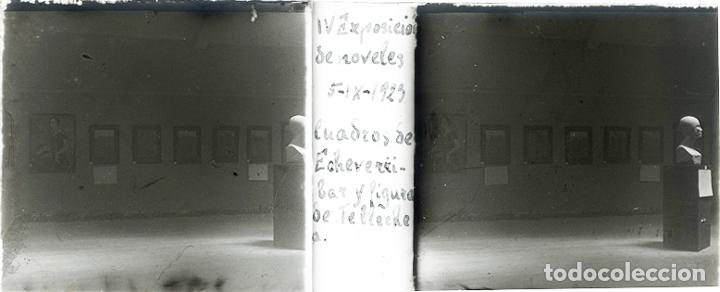 IV Exposición
de noveles
5-IX-1923
Cuadros de
Echeverri-
bar y figura
de Telleche
a.
todocoleccion